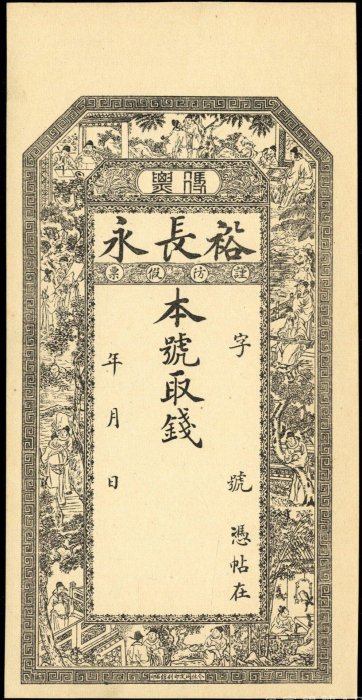 裕長永
謹防假票
字號憑帖在
本號取錢
年月日